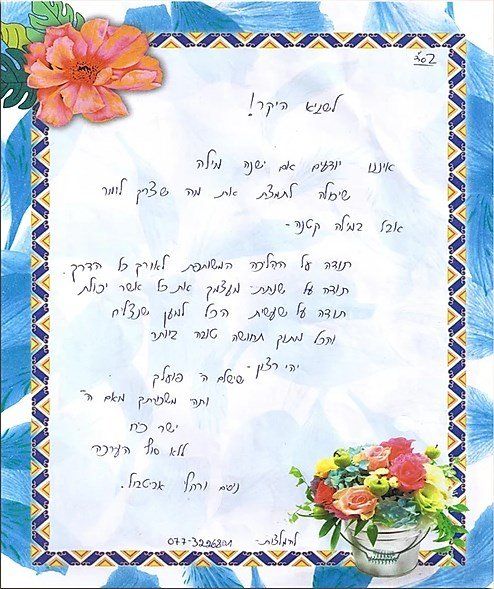 בס"ד
לשניא היקר!
איננו יודעים אם ישנה מילה
שיכולה לתמצת את מה שצריך לומר
אבל במילה קטנה-
תודה על ההליכה המשותפת לאורך כל הדרך.
תודה על שנתת מעצמך את כל אשר יכולת
תודה על שעשית הכל למען שנצליח
והכל מתוך תחושה טובה ביותר
יהי רצון-
שישלם ה' פועלך
ותהי משכורתך מאת ה'-
ישר כח
ללא סוף הערכה
ניסים ורחלי
להמלצות- 077-3226881